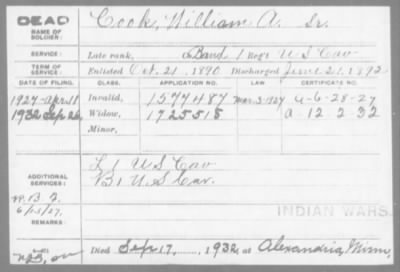 DEAD
NAME OF SOLDIER: Cook, William A. Sr.
SERVICE: Late rank, Band 1 Reg't U S Cav
TERM OF SERVICE: Enlisted Oct. 21, 1890 Discharged June 21, 1892
DATE OF FILING. CLASS. APPLICATION NO. LAW. CERTIFICATE NO.
1927-Apr 18 Invalid, 1577487 Mar 3-1927 a-6-28-27
1932 Sep 26 Widow, 1725518 a 12 2 32
Minor,
ADDITIONAL SERVICES: L 1 U S Cav
B 1 U S Cav.
6/25/27.
INDIAN WARS.
REMARKS:
Died Sep 17, 1932, at Alexandria, Minn.